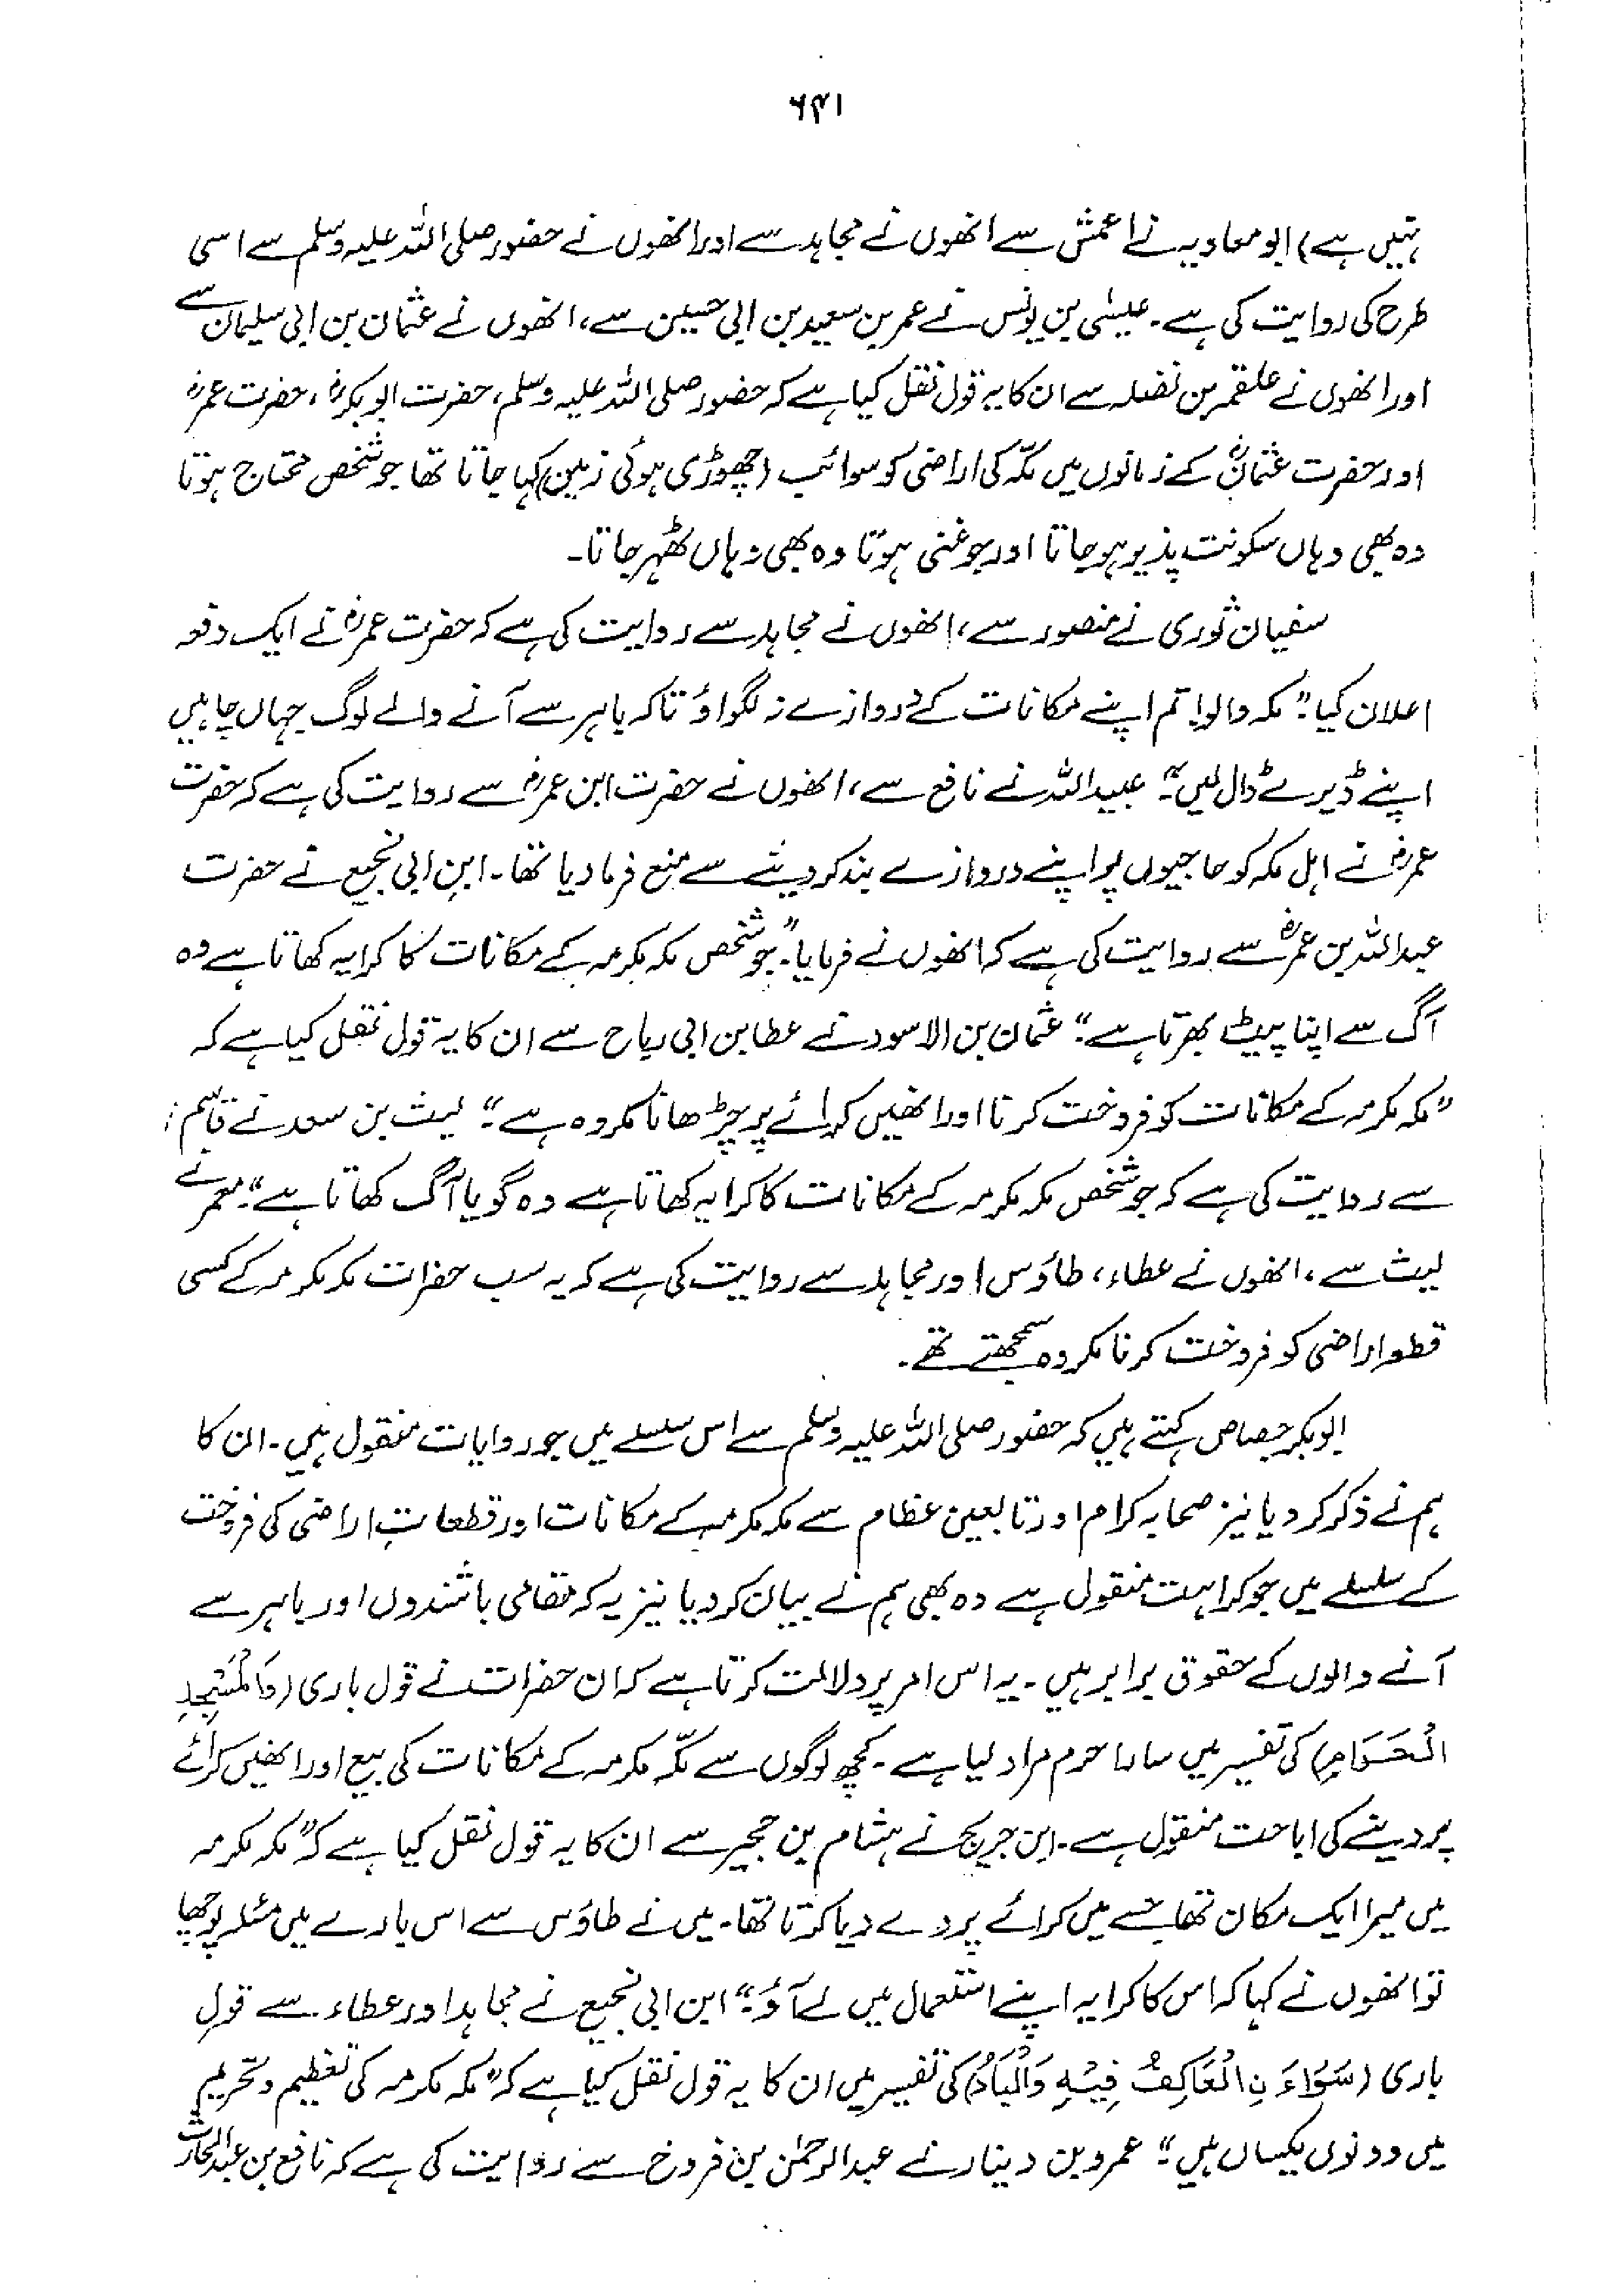 ۶۴۱
نہیں ہے) ابو معاویہ نے اعمش سے انھوں نے مجاہد سے اور انھوں نے حضور صلی اللہ علیہ وسلم سے اسی
طرح کی روایت کی ہے۔ عیسٰی بن یونس نے عمر بن سعید بن ابی حسین سے، انھوں نے عثمان بن ابی سلیمان سے
اور انھوں نے علقمہ بن نضلہ سے ان کا یہ قول نقل کیا ہے کہ حضور صلی اللہ علیہ وسلم، حضرت ابوبکرؓ، حضرت عمرؓ
اور حضرت عثمانؓ کے زمانوں میں مکّہ کی اراضی کو سوائب (چھوڑی ہوئی زمین) کہا جاتا تھا جو شخص محتاج ہوتا
وہ بھی وہاں سکونت پذیر ہو جاتا اور جو غنی ہوتا وہ بھی وہاں ٹھہر جاتا۔
سفیان ثوری نے منصور سے، انھوں نے مجاہد سے روایت کی ہے کہ حضرت عمرؓ نے ایک دفعہ
اعلان کیا: "مکہ والو! تم اپنے مکانات کے دروازے نہ لگواؤ تاکہ باہر سے آنے والے لوگ جہاں چاہیں
اپنے ڈیرے ڈال لیں" عبیداللہ نے نافع سے، انھوں نے حضرت ابن عمرؓ سے روایت کی ہے کہ حضرت
عمرؓ نے اہل مکہ کو حاجیوں پر اپنے دروازے بند کر دینے سے منع فرما دیا تھا۔ ابن ابی نجیح نے حضرت
عبداللہ بن عمرؓ سے روایت کی ہے کہ انھوں نے فرمایا: "جو شخص مکہ مکرمہ کے مکانات کا کرایہ کھاتا ہے وہ
آگ سے اپنا پیٹ بھرتا ہے" عثمان بن الاسود نے عطا بن ابی رباح سے ان کا یہ قول نقل کیا ہے کہ
"مکہ مکرمہ کے مکانات کو فروخت کرنا اور انھیں کرائے پر چڑھانا مکروہ ہے" لیث بن سعد نے قاسم
سے روایت کی ہے کہ جو شخص مکہ مکرمہ کے مکانات کا کرایہ کھاتا ہے وہ گویا آگ کھاتا ہے" معمر نے
لیث سے، انھوں نے عطاء، طاؤس اور مجاہد سے روایت کی ہے کہ یہ سب حضرات مکہ مکرمہ کے کسی
قطعہ اراضی کو فروخت کرنا مکروہ سمجھتے تھے۔
ابوبکر جصاص کہتے ہیں کہ حضور صلی اللہ علیہ وسلم سے اس سلسلے میں جو روایات منقول ہیں۔ ان کا
ہم نے ذکر کر دیا نیز صحابہ کرام اور تابعین عظام سے مکہ مکرمہ کے مکانات اور قطعاتِ اراضی کی فروخت
کے سلسلے میں جو کراہت منقول ہے وہ بھی ہم نے بیان کر دیا نیز یہ کہ مقامی باشندوں اور باہر سے
آنے والوں کے حقوق برابر ہیں۔ یہ اس امر پر دلالت کرتا ہے کہ ان حضرات نے قول باری (وَالْمَسْجِدِ
الْحَرَامِ) کی تفسیر میں سارا حرم مراد لیا ہے۔ کچھ لوگوں سے مکّہ مکرمہ کے مکانات کی بیع اور انھیں کرائے
پر دینے کی اباحت منقول ہے۔ ابن جریج نے ہشام بن حجیر سے ان کا یہ قول نقل کیا ہے کہ "مکہ مکرمہ
میں میرا ایک مکان تھا جسے میں کرائے پر دے دیا کرتا تھا۔ میں نے طاؤس سے اس بارے میں مسئلہ پوچھا
تو انھوں نے کہا کہ اس کا کرایہ اپنے استعمال میں لے آؤ" ابن ابی نجیح نے مجاہد اور عطاء سے قولِ
باری (سَوَاءَ نِ الْعَاكِفُ فِيْهِ وَالْبَادُ) کی تفسیر میں ان کا یہ قول نقل کیا ہے کہ "مکہ مکرمہ کی تعظیم و تحریم
میں دونوں یکساں ہیں" عمرو بن دینار نے عبدالرحمٰن بن فروخ سے روایت کی ہے کہ نافع بن عبدالحارث